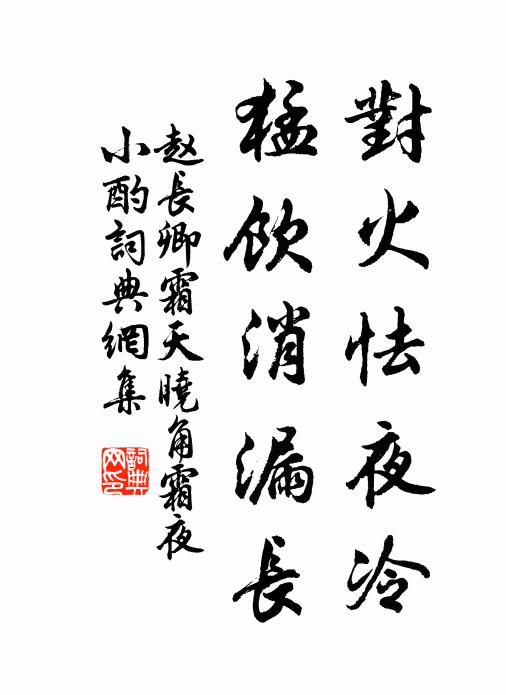 對火怯夜冷
猛飲消漏長
赵長卿霜天曉角霜夜
小酌詞典網集
詞典
网印